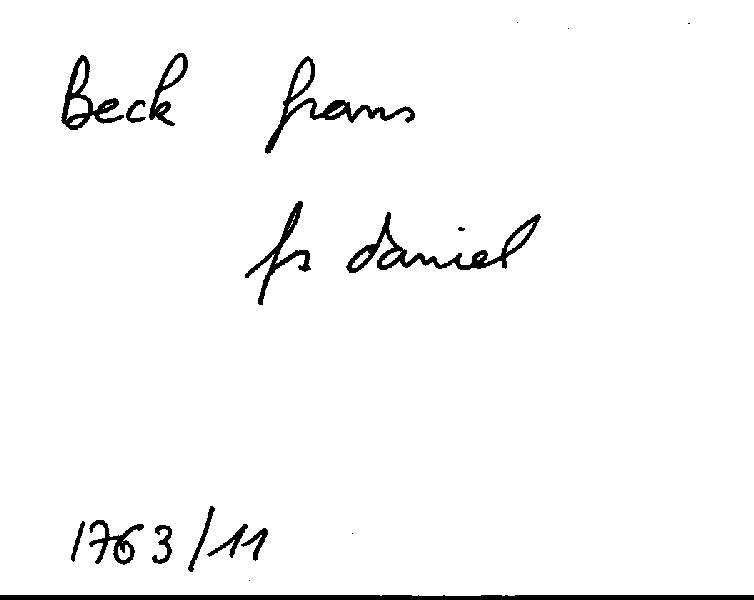 Beck frans
fs daniel
1763/11